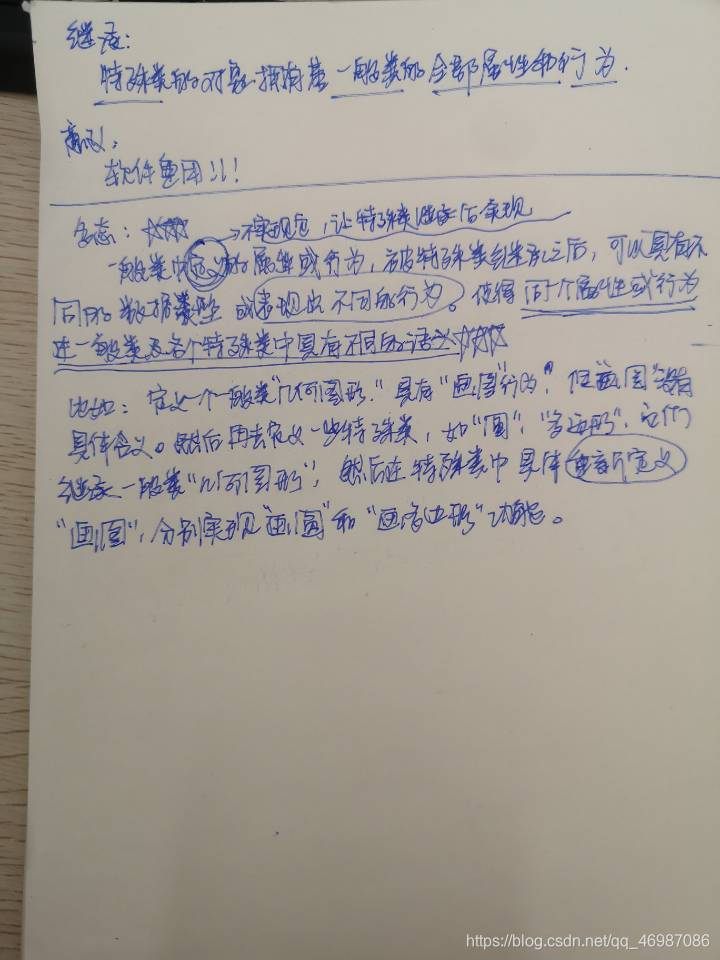 继承：
特殊类的对象拥有着一般类的全部属性和行为.
意义：
软件重用！！！
多态：☆☆☆ →不实现它，让特殊类继承后实现
一般类中定义的属性或行为，被特殊类继承之后，可以具有不
同的数据类型或表现出不同的行为。使得同一个属性或行为
在一般类及各个特殊类中具有不同的语义☆☆☆
比如：定义一个一般类“几何图形”具有“画图”行为，但“画图”没有
具体含义。然后再去定义一些特殊类，如“圆”，“多边形”，它们
继承一般类“几何图形”，然后在特殊类中具体重新定义
“画图”，分别实现“画圆”和“画多边形”功能。
https://blog.csdn.net/qq_46987086